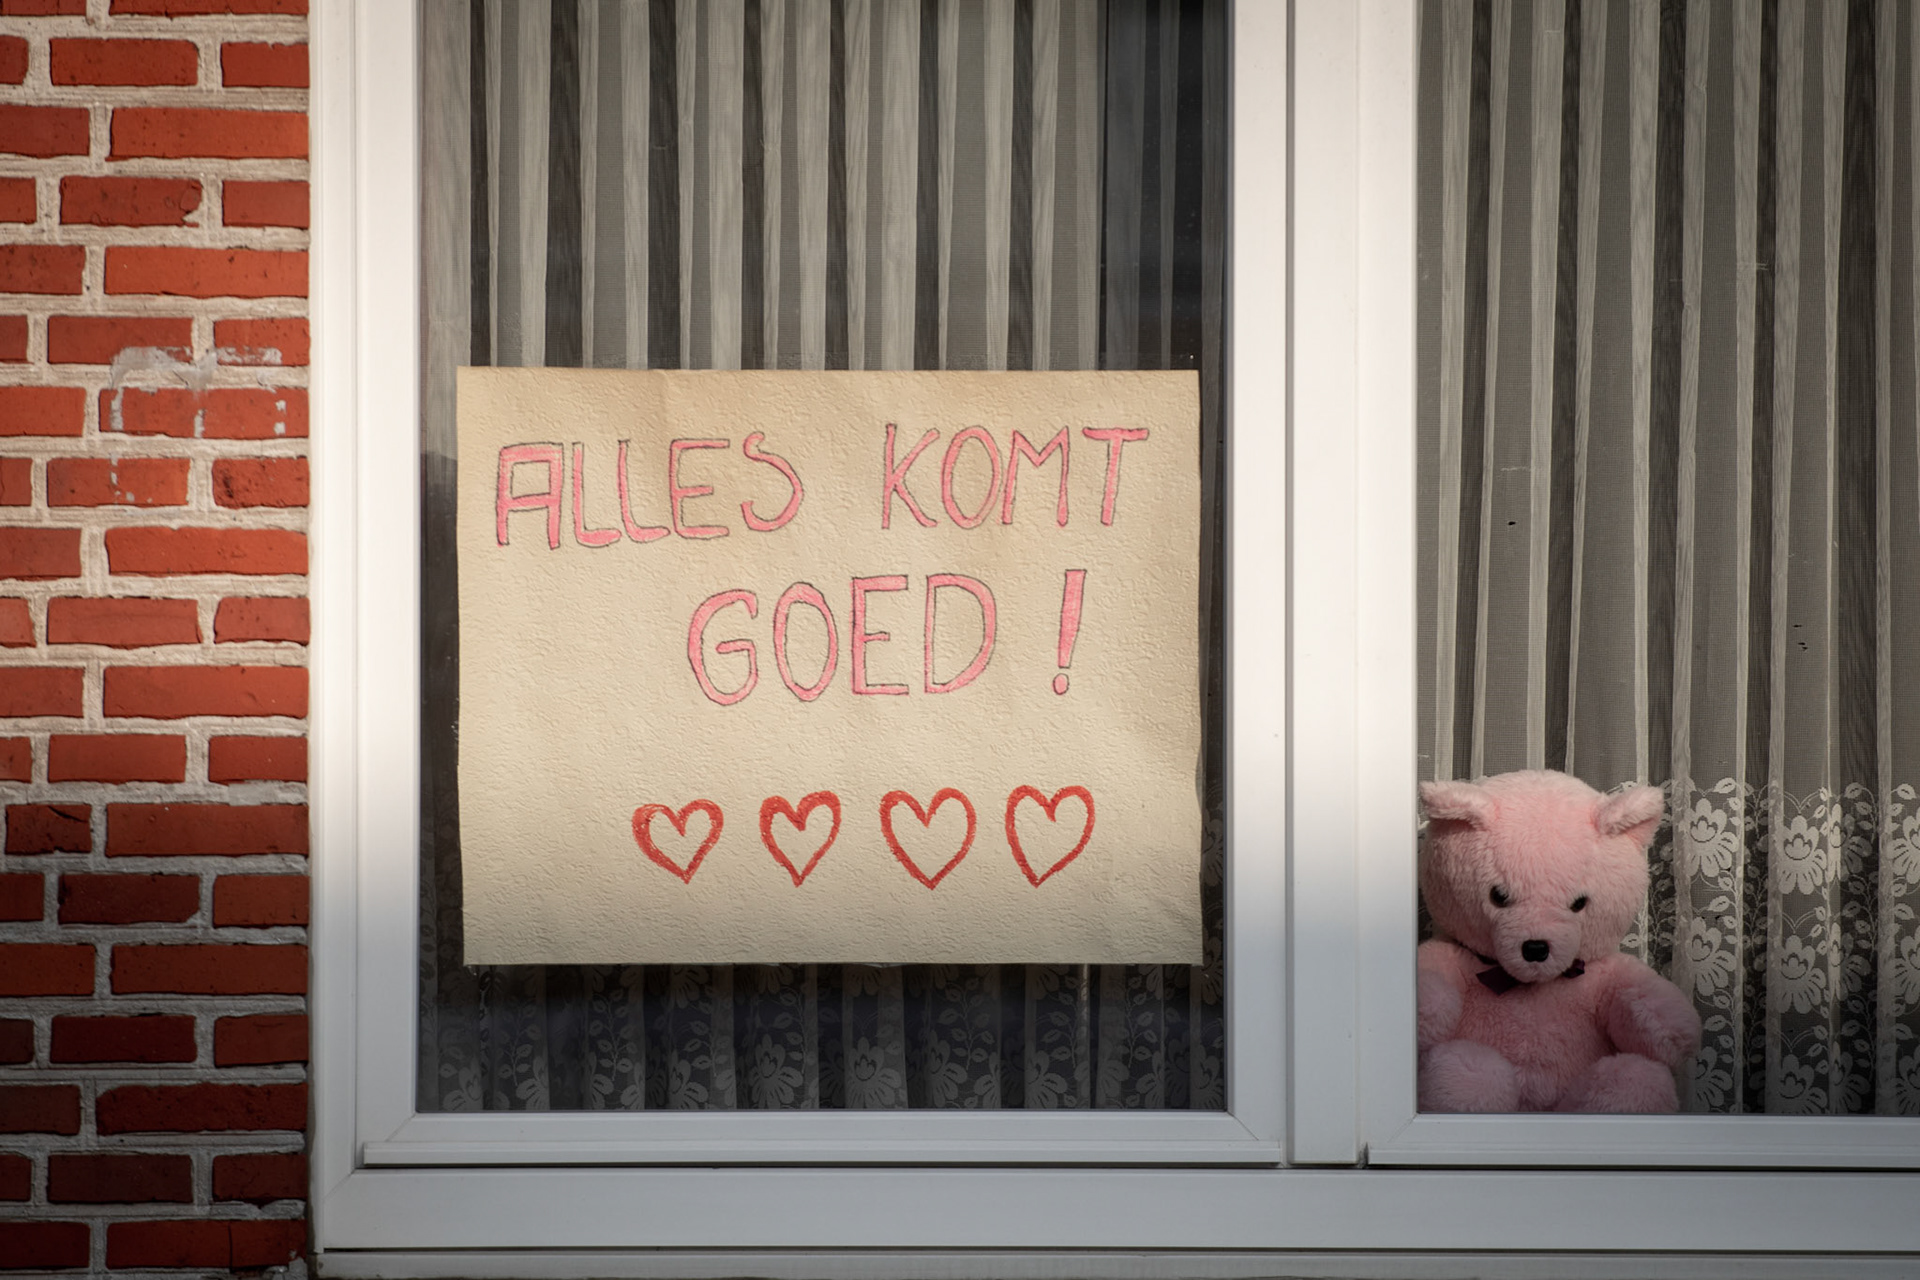 ALLES KOMT
GOED !